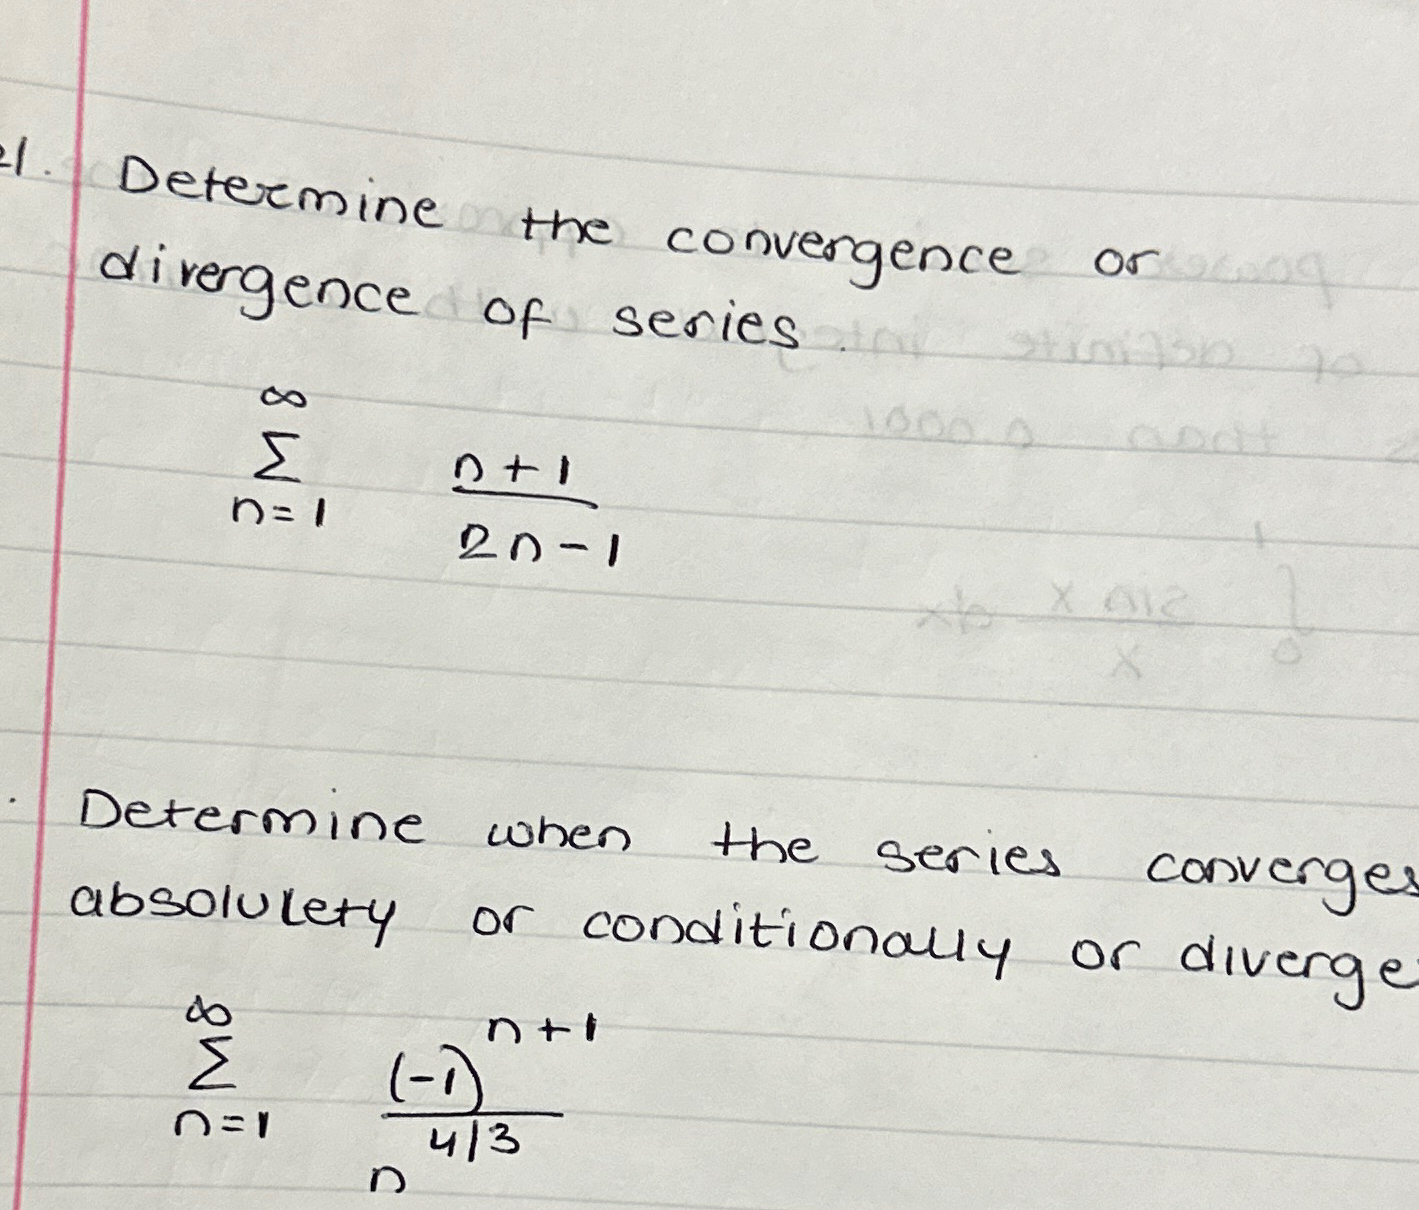 21. Determine the convergence or
divergence of series.
∞
Σ n+1
n=1 2n-1
. Determine when the series converges
absolulety or conditionally or diverge
∞ n+1
Σ (-1)
n=1 4/3
n